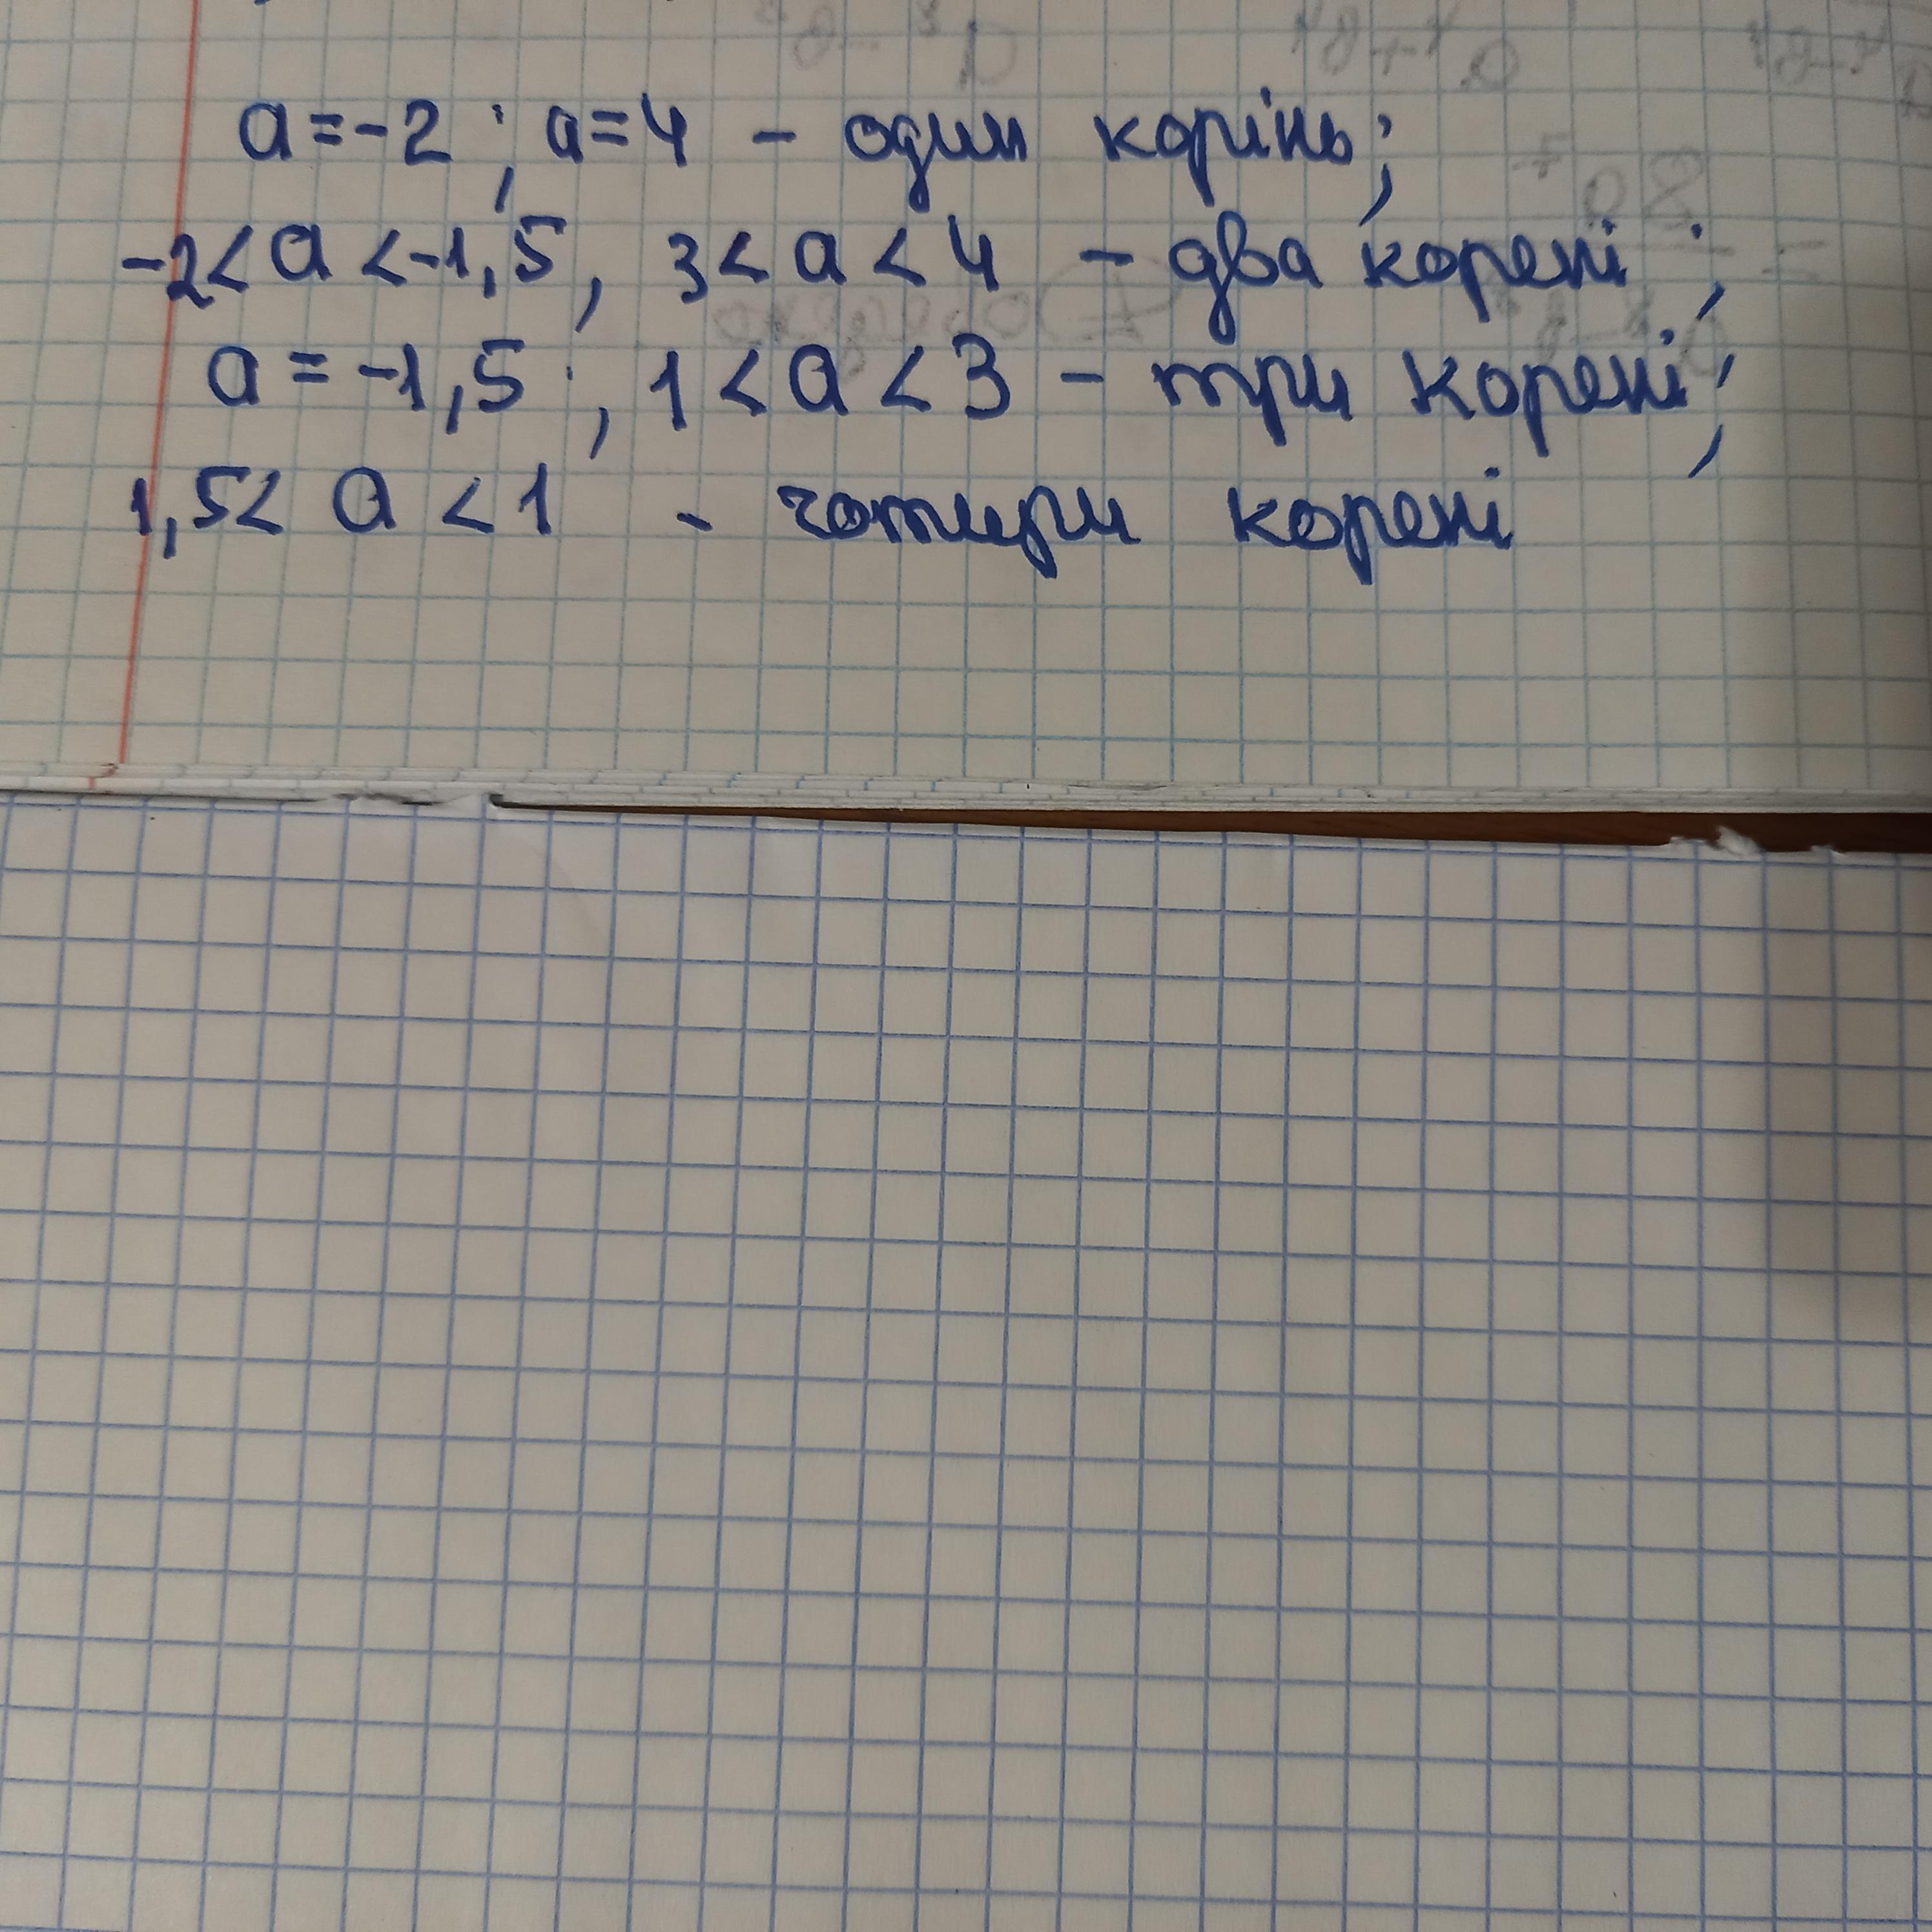 a = -2 ; a = 4 - один корінь;
-2 < a < -1,5, 3 < a < 4 - два корені ;
a = -1,5 ; 1 < a < 3 - три корені;
1,5 < a < 1 - чотири корені